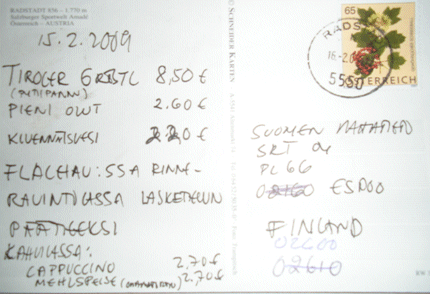 RADSTADT 856 - 1.770 m
Salzburger Sportwelt Amadé
Österreich - AUSTRIA
15.2.2009
TIROLER GRÖSTL 8,50 €
(PYTTIPANNU)
PIENI OLUT 2.60 €
KIVENNÄISVESI 2,20 €
FLACHAU:SSA RINNE-
RAVINTOLASSA LASKETTELUN
PÄÄTTEEKSI
KAHVILASSA:
CAPPUCCINO 2,70 €
MEHLSPEISE 2,70 €
© SCHNEIDER KARTEN
65
RADSTADT
16.-2.0
5550
ÖSTERREICH
SUOMEN
SRT
PL 66
02160 ESPOO
FINLAND
02600
02610